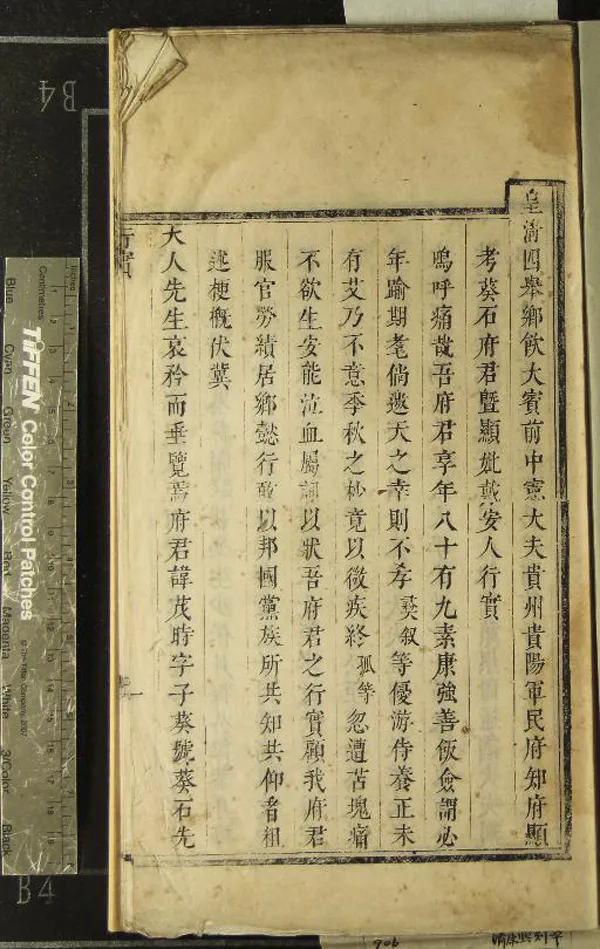 皇淸四舉鄉飲大賓前中憲大夫貴州貴陽軍民府知府顯
考葵石府君曁顯妣戴安人行實
嗚呼痛哉吾府君享年八十有九素康強善飯僉謂必
年踰期耄倘邀天之幸則不孝彛叙等優游侍養正未
有艾乃不意季秋之杪竟以微疾終孤等忽遭苫塊痛
不欲生安能泣血屬詞以狀吾府君之行實顧我府君
服官勞績居鄉懿行敢以邦國黨族所共知共仰者粗
述梗槪伏冀
大人先生哀矜而垂覽焉府君諱茂時字子葵號葵石先
行實
一
B4
B4
Inches
Centimetres
TIFFEN Color Control Patches
© The Tiffen Company, 2007
Blue
Cyan
Green
Yellow
Red
Magenta
White
3/Color
Black
906